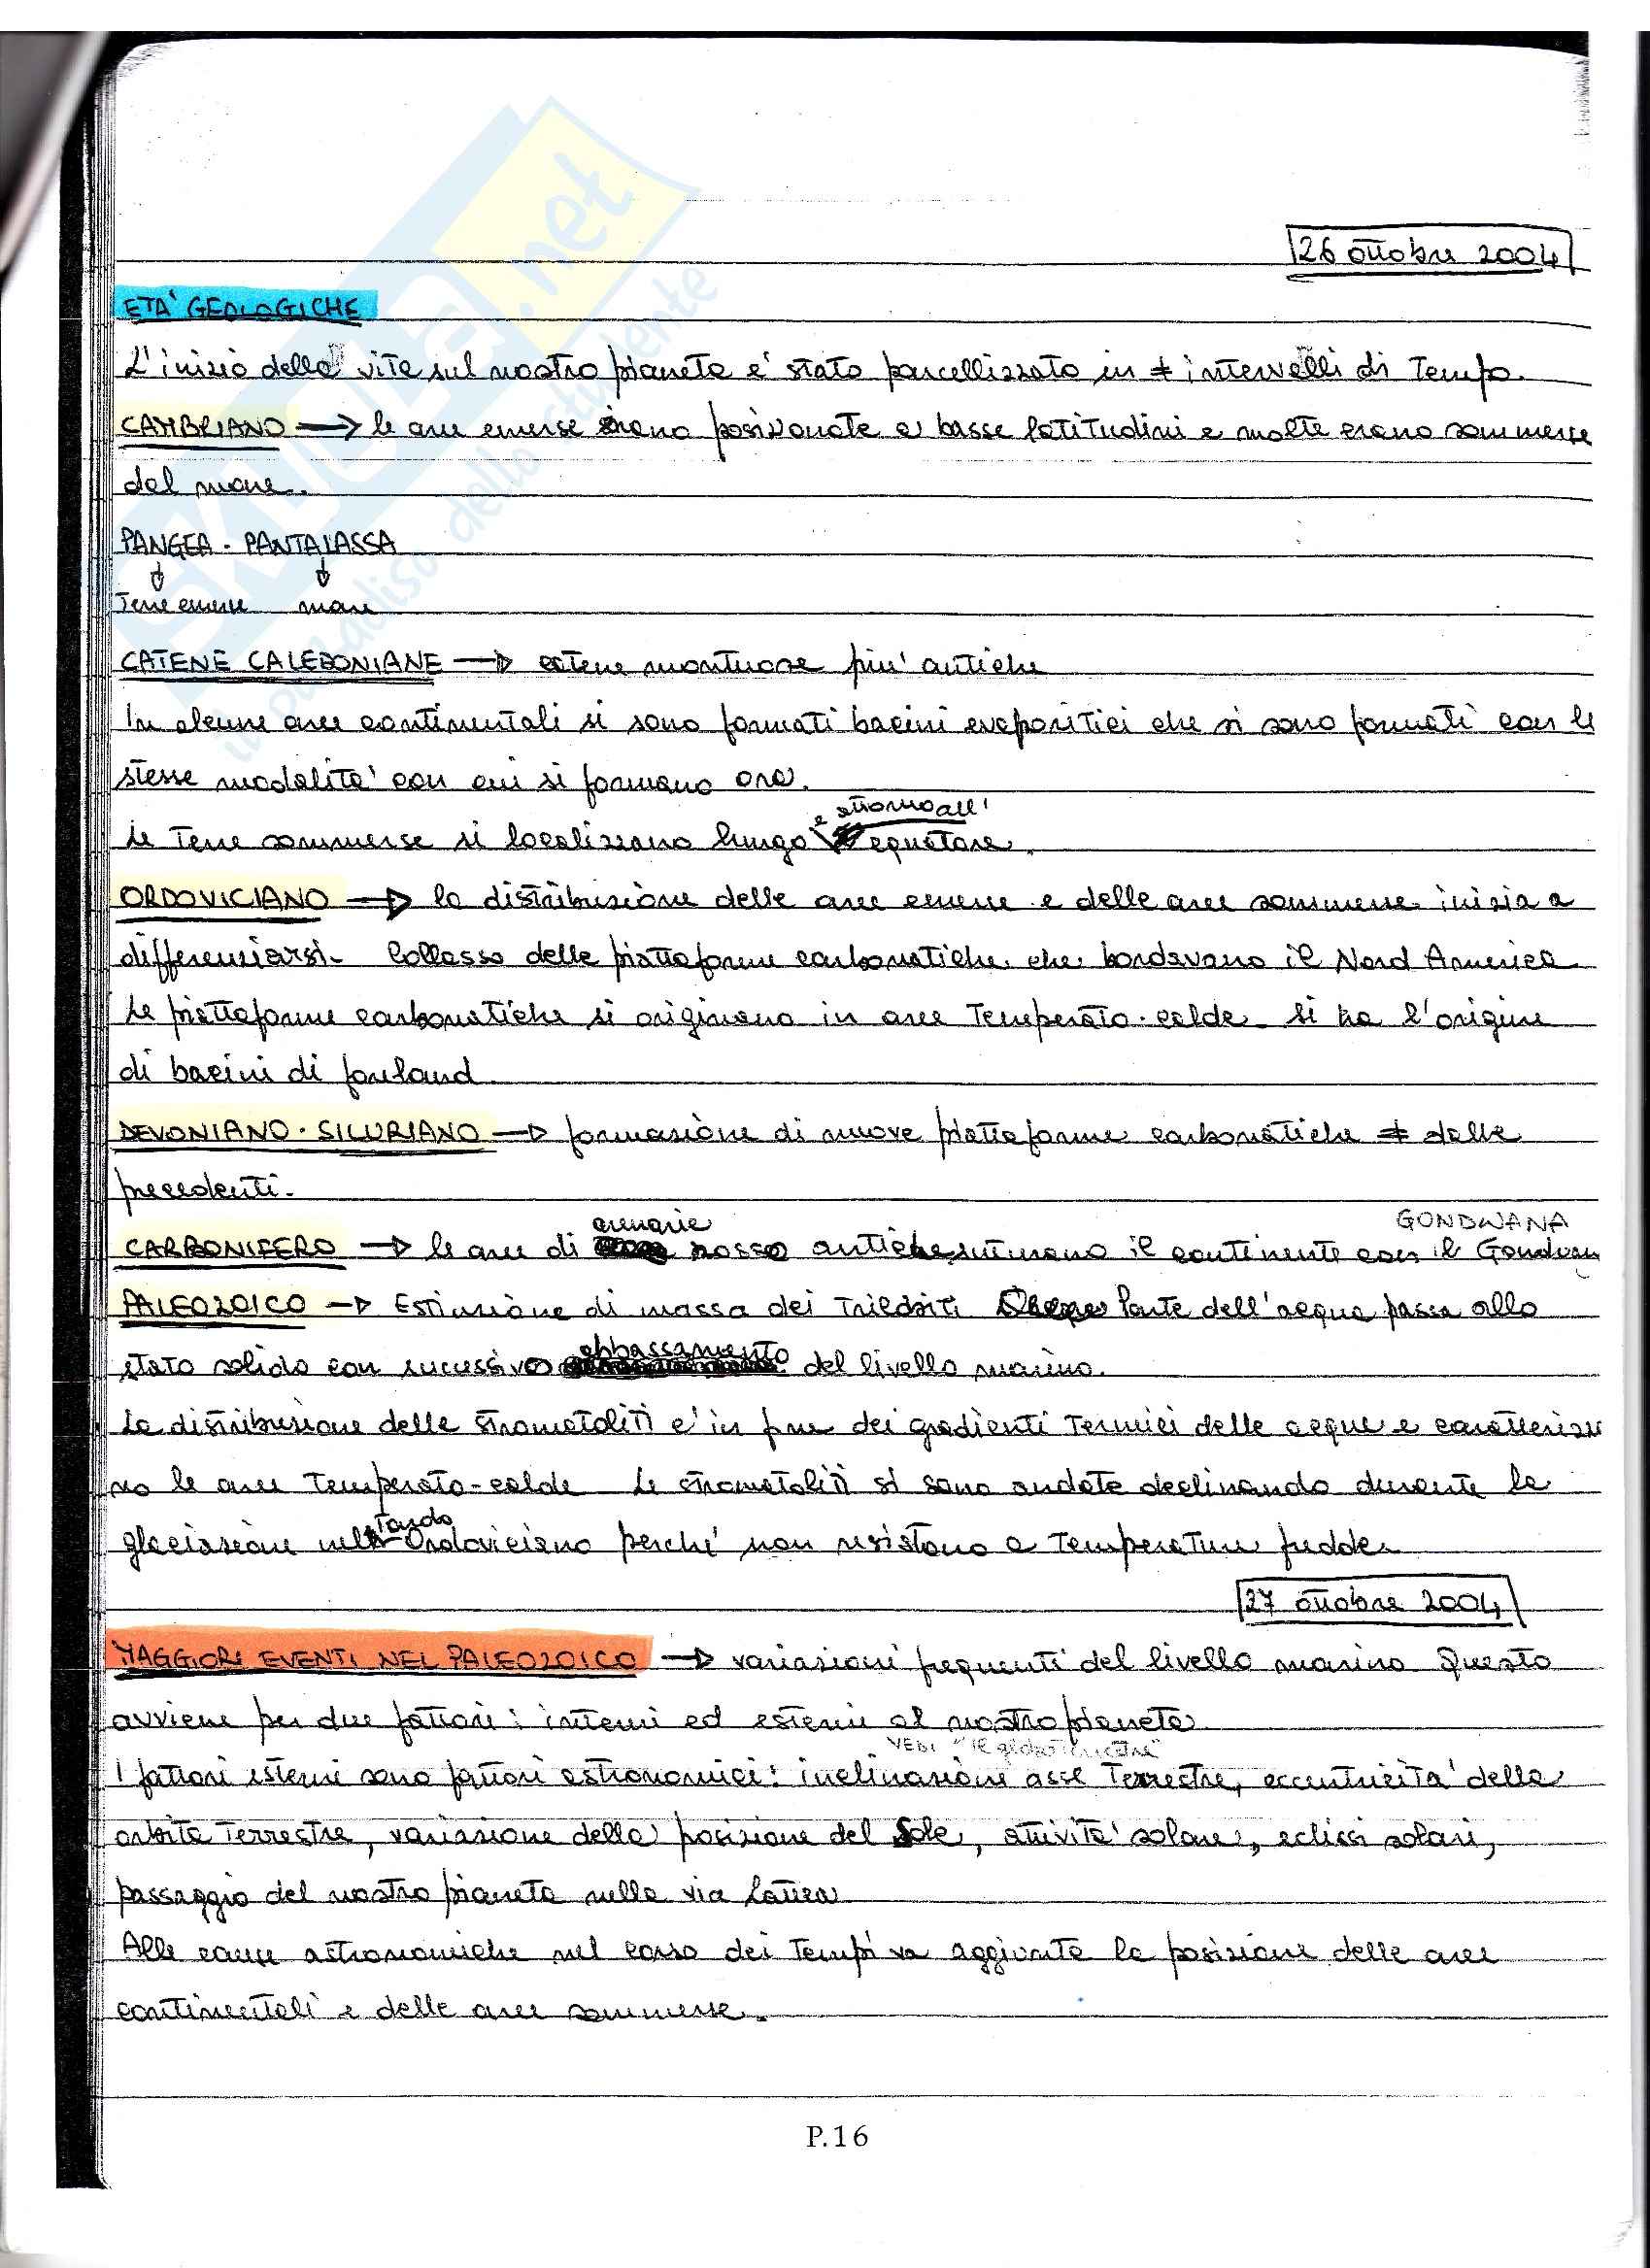 26 ottobre 2004
ETA' GEOLOGICHE
L'inizio della vita sul nostro pianeta e' stato parcellizzato in ≠ intervalli di tempo.
CAMBRIANO → le aree emerse erano posizionate a basse latitudini e molte erano sommerse
dal mare.
PANGEA - PANTALASSA
↓ ↓
Terre emerse mare
CATENE CALEDONIANE → catene montuose piu' antiche
In alcune aree continentali si sono formati bacini evaporitici che si sono formati con le
stesse modalita' con cui si formano ora.
Le terre sommerse si localizzano lungo e attorno all' equatore.
ORDOVICIANO → la distribuzione delle aree emerse e delle aree sommerse inizia a
differenziarsi. Collasso delle piattaforme carbonatiche che bordavano il Nord America
Le piattaforme carbonatiche si originano in aree temperato-calde. Si ha l'origine
di bacini di foreland
DEVONIANO - SILURIANO → formazione di nuove piattaforme carbonatiche ≠ dalle
precedenti.
GONDWANA
CARBONIFERO → le aree di arenarie rosse antiche suturano il continente con il Gondwan
PALEOZOICO → Estinzione di massa dei Trilobiti Parte dell'acqua passa allo
stato solido con successivo abbassamento del livello marino.
La distribuzione delle stromatoliti e' in fne dei gradienti termici delle acque e caratterizza
no le aree temperato-calde Le stromatoliti si sono andate declinando durante la
glaciazione nel Tardo Ordoviciano perche' non resistono a temperature fredde.
27 ottobre 2004
MAGGIORI EVENTI NEL PALEOZOICO → variazioni frequenti del livello marino Questo
avviene per due fattori: interni ed esterni al nostro pianeta
VEDI "Il globo terrestre"
I fattori esterni sono fattori astronomici: inclinazione asse Terrestre, eccentricita' della
orbita Terrestre, variazione della posizione del Sole, attivita' solare, eclissi solari,
passaggio del nostro pianeta nella via Lattea
Alle cause astronomiche nel corso dei tempi va aggiunta la posizione delle aree
continentali e delle aree sommerse.
P.16
SKUOLA.net
il paradiso dello studente